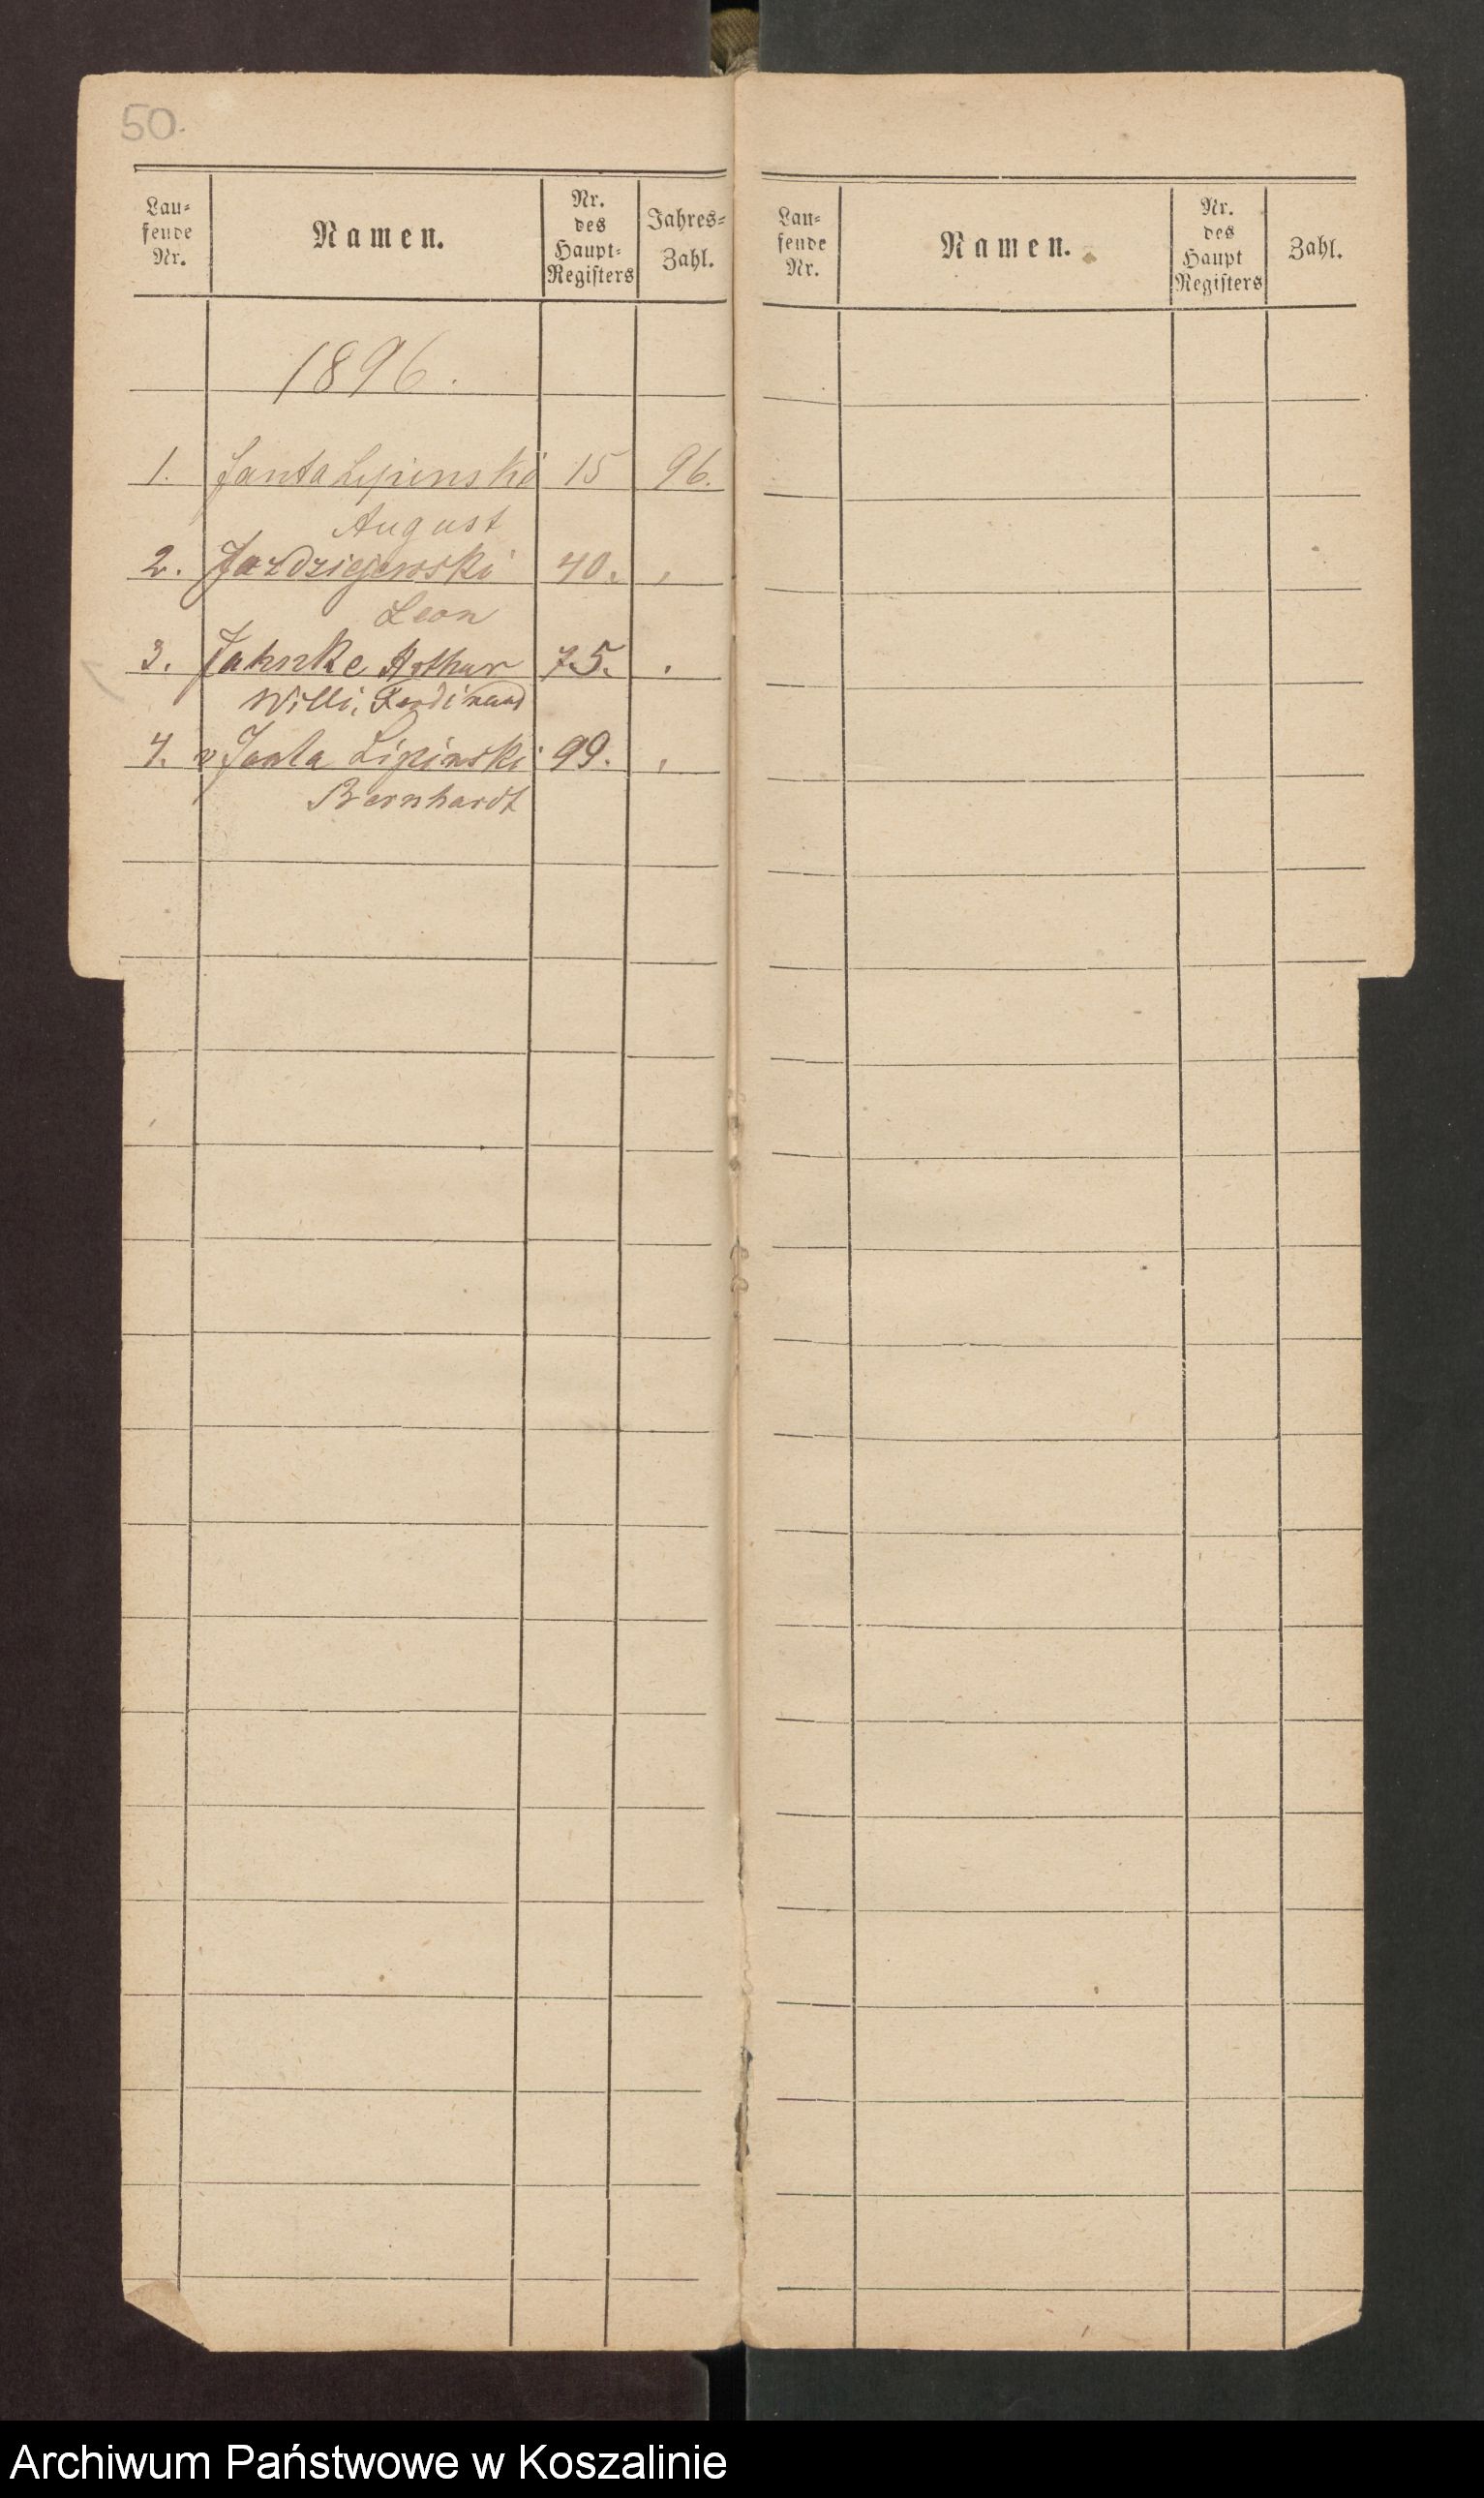 50.
Lau=
fende
Nr.
Namen.
Nr.
des
Haupt=
Registers
Jahres=
Zahl.
1896.
1. Janta Lipinski 15 96.
August
2. Jazdziejewski 40. ,
Leon
3. Jahnke Arthur 75. .
Willi, Ferdinand
4. v Janta Lipinski 99. ,
Bernhardt
Lau=
fende
Nr.
Namen.
Nr.
des
Haupt
Registers
Zahl.
Archiwum Państwowe w Koszalinie